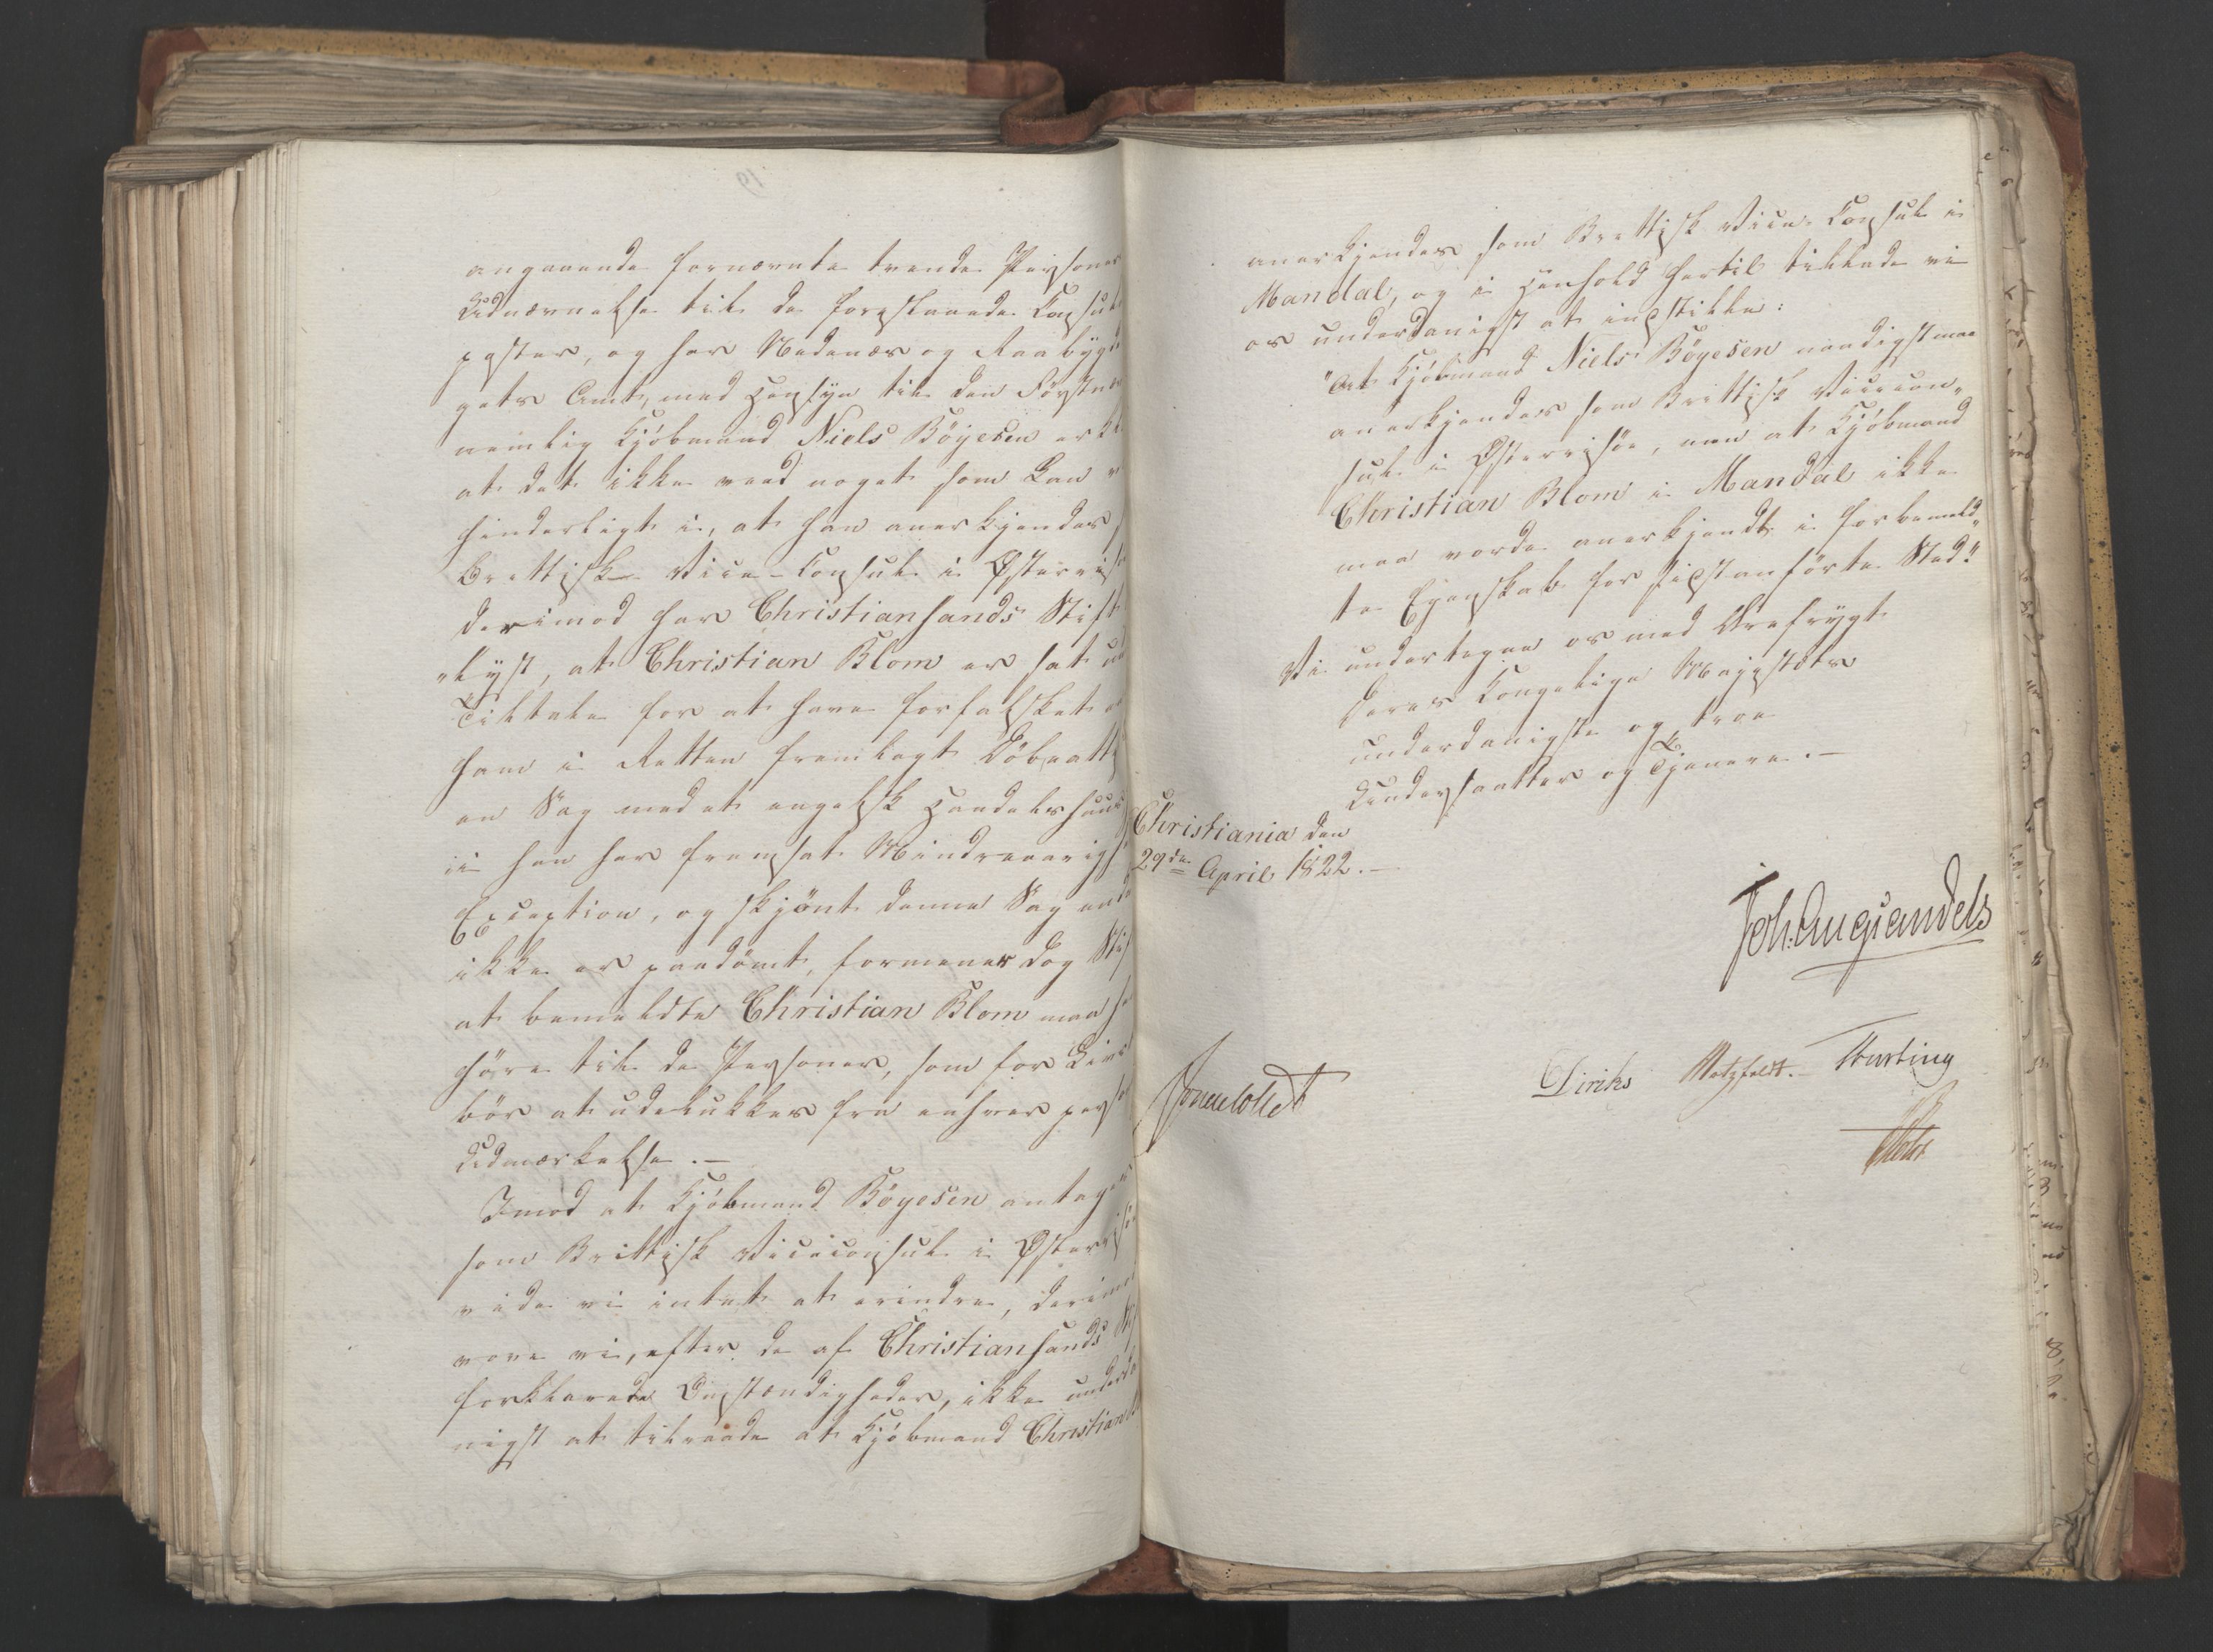 angaaende fornævnte trende Personer
Udnævnelse til de foreslaaede Consul
poster, og har Nedenæs og Raabygde
gets Amt, med Hensyn til den Første
nemlig Kjøbmand Niels Böyesen erkl
at det ikke veed noget som kan v
hinderligt i, at han anerkjendes
Brittisk Vice-Consul i Østerriis
derimod har Christiansands Stift
"lyst, at Christian Blom er sat un
Tiltale for at have forfalsket
ham i Retten fremlagt Döbeatt
en Sag med et engelsk Handelshuus
i han har fremsat Mindreaarigh
Exception, og skjönt denne Sag end
ikke er paadömt, formener dog Stif
at bemeldte Christian Blom maa
høre til de Personer, som for
bör at udelukkes fra enhver pers
Udmærkelse. —
Imod at Kjöbmand Böyesen antages
som Brittisk Viceconsul i Østerriisöe
vide vi intet at erindre, derimod
vove vi, efter de af Christiansands
forklarede Omstændigheder, ikke underda
nigst at tilraade at Kjöbmand Christian
19
anerkjendes som Brittisk Vice-Consul i
Mandal, og i Henhold hertil tillade vi
os underdanigst at indstille:
"At Kjöbmand Niels Böyesen naadigst maa
anerkjendes som Brittisk Vicecon„
sul i Østerriisöe, men at Kjöbmand
Christian Blom i Mandal ikke
maa vorde anerkjendt i forbemeld„
te Egenskab for sidstanførte Sted."
Vi undertegne os med Ærefrygt
Deres Kongelige Majestæts
underdanigste og troe
Undersaatter og Tjenere. —
Christiania den
29de April 1822. —
Joh: Aug: Sandels
Jonas Collet
Diriks Motzfeldt. Thurting